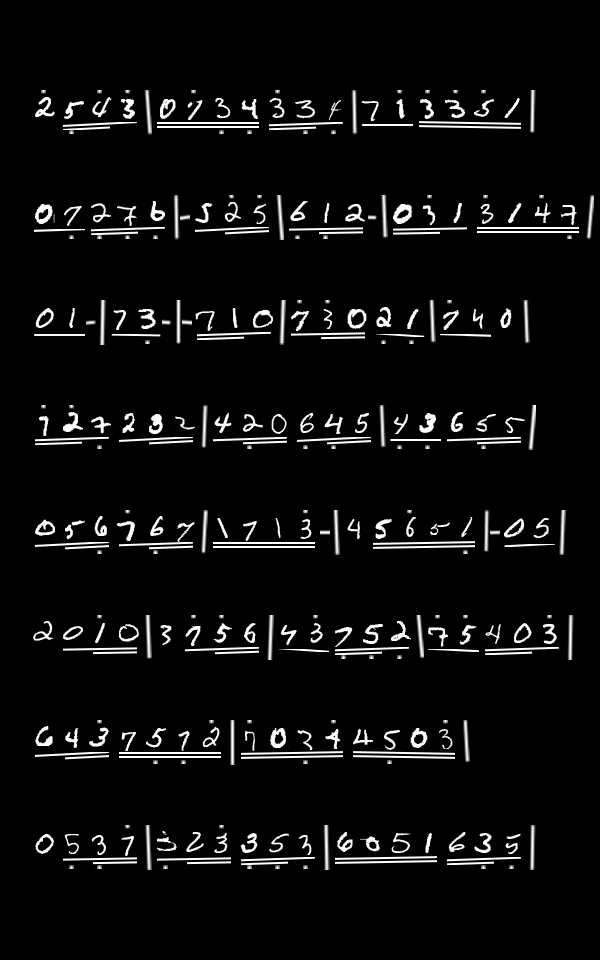 2543|0734334|713351
07276|-525|612-|0313147
01-|73-|-710|73021|740
727232|420645|43655
056767|1713-|45651|-05
2010|3756|43752|75403
6437512|70344503
0537|323353|6051635